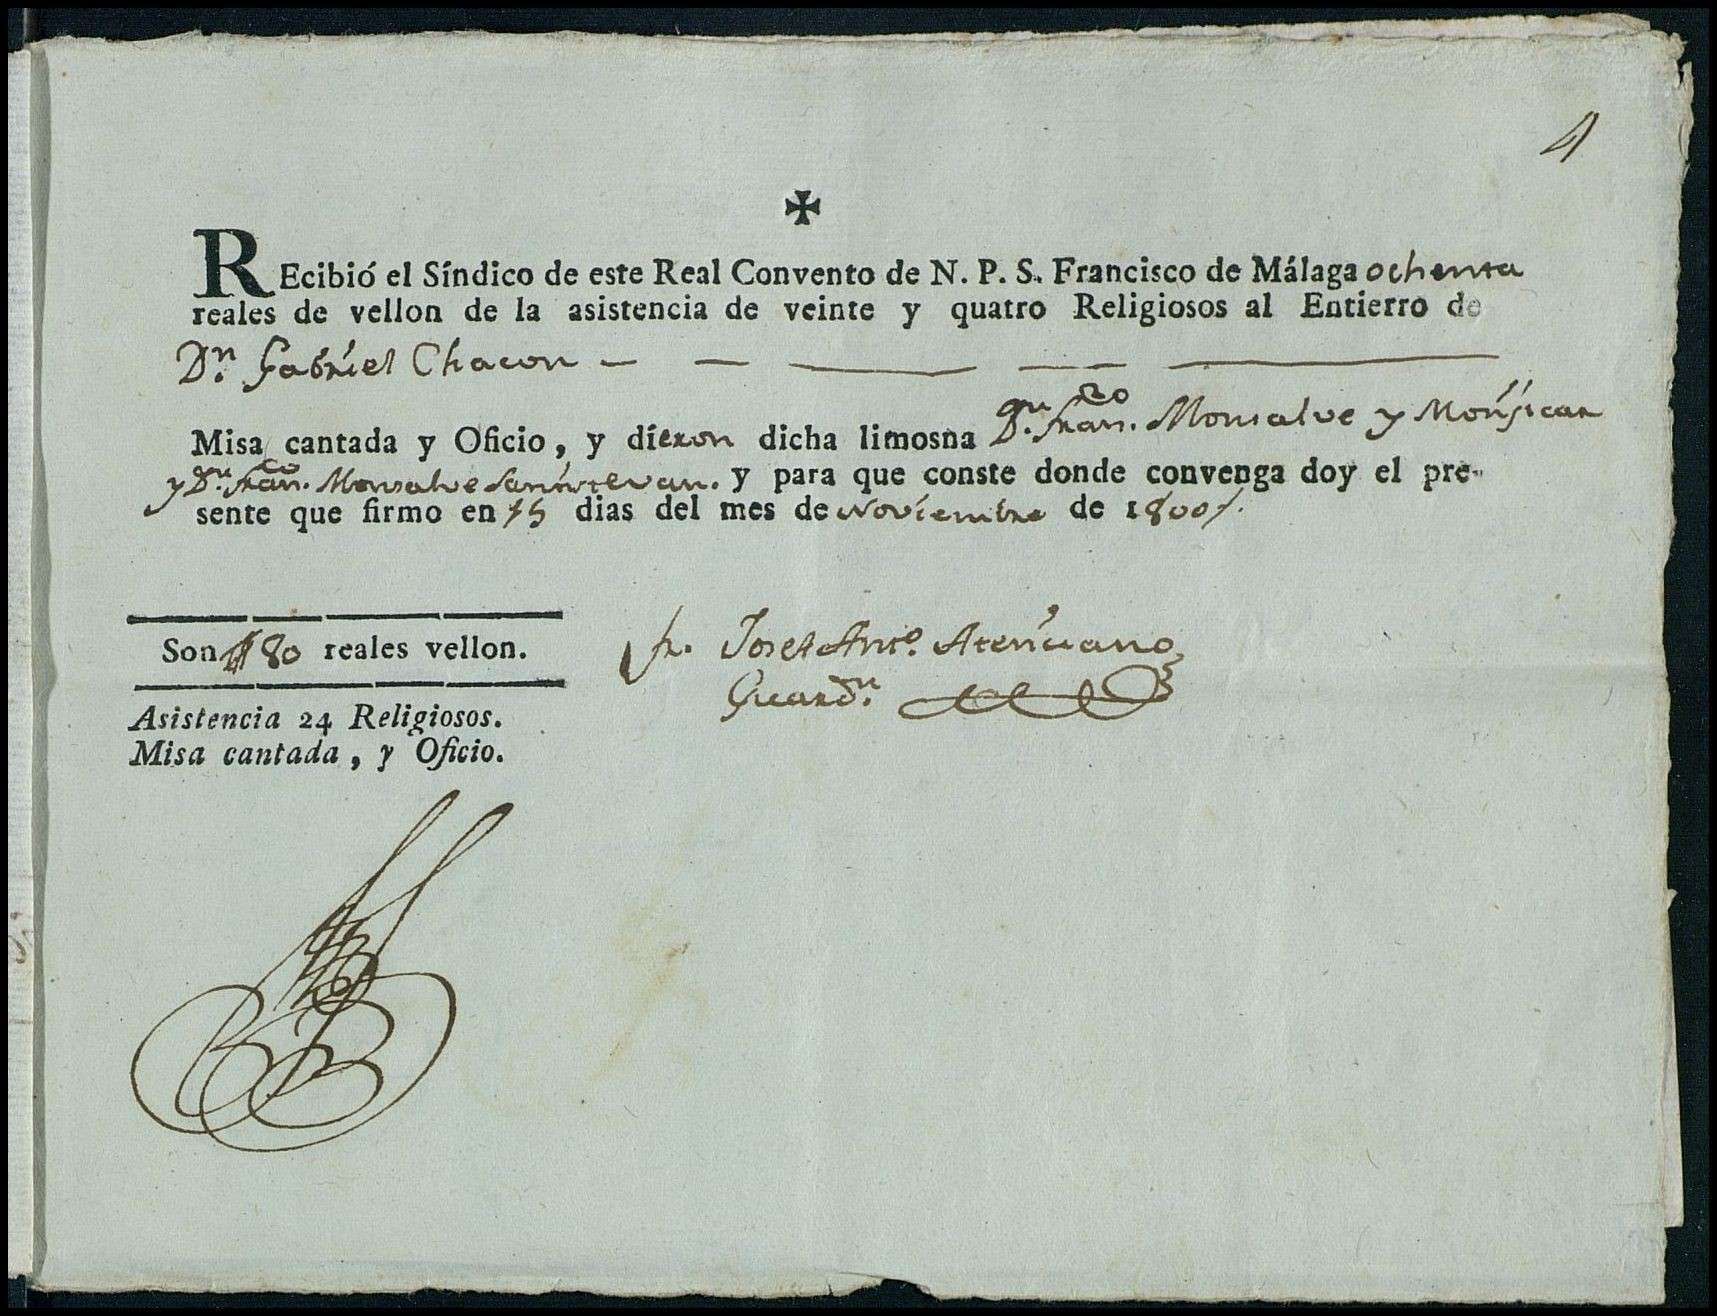 4
✠
REcibió el Síndico de este Real Convento de N. P. S. Francisco de Málaga ochenta
reales de vellon de la asistencia de veinte y quatro Religiosos al Entierro de
Dn. Gabriel Chacon
Misa cantada y Oficio, y dieron dicha limosna Dn. Franco. Monsalve y
y Dn. Franco. Monsalve y para que conste donde convenga doy el pre-
sente que firmo en 15 dias del mes de Noviembre de 1800
Son 80 reales vellon.
Fr. Josef Anto.
Guardn.
Asistencia 24 Religiosos.
Misa cantada, y Oficio.